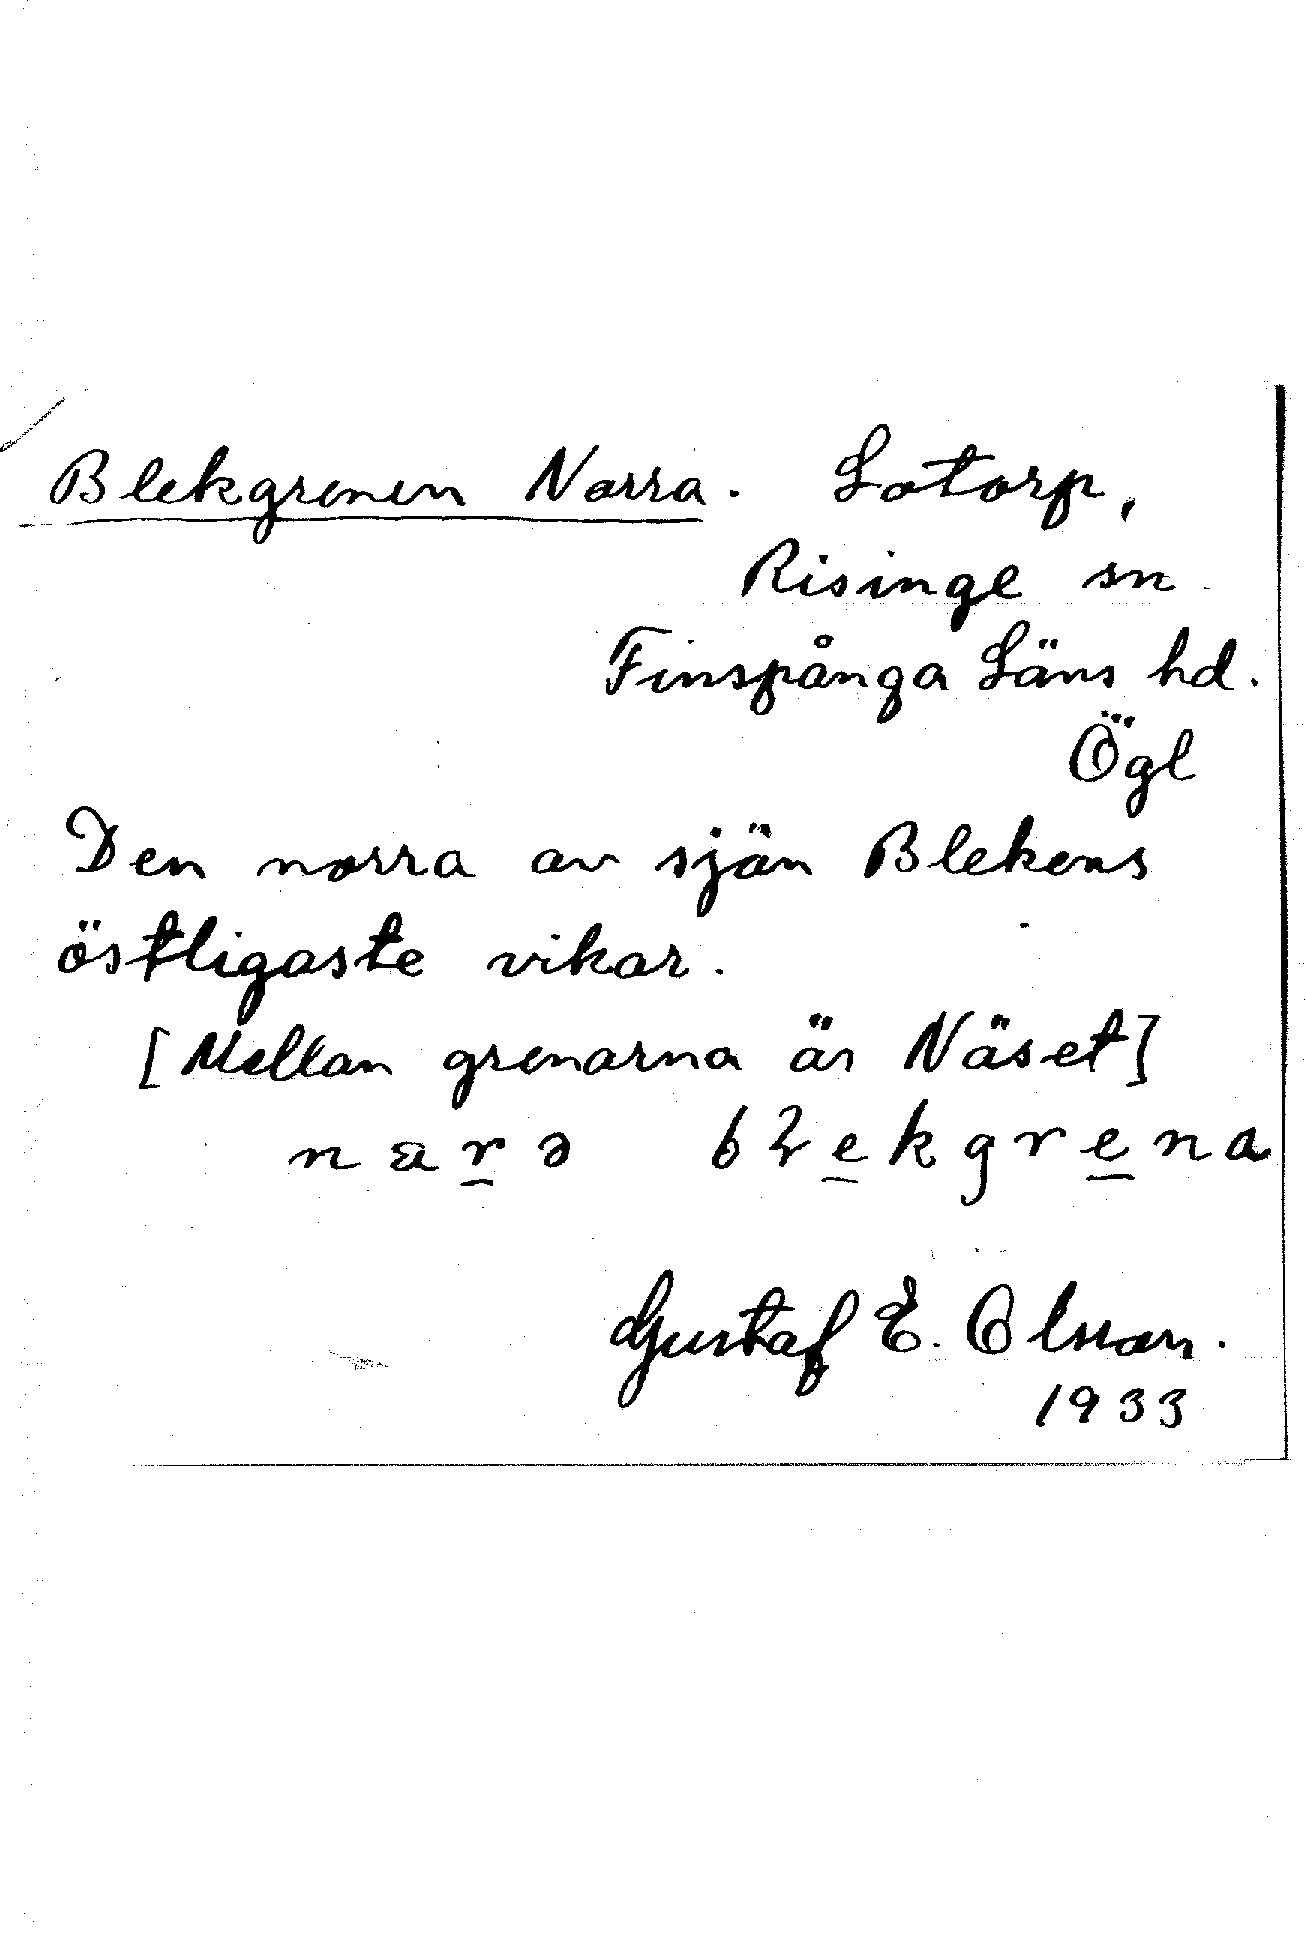 Blekgrenen Norra. Lotorp,
Risinge sn
Finspånga Läns hd.
Ögl
Den norra av sjön Blekens
östligaste vikar.
[Mellan grenarna är Näset]
Gustaf E. Olsson.
1933